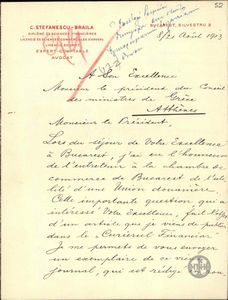 52
C. STEFANESCU-BRAILA
DIPLÔMÉ ÈS SCIENCES FINANCIÈRES
LICENCE
EXPERT-COMPTABLE
AVOCAT
BUCAREST, SILVESTRU 2
8/21 Août 1913
A Son Excellence
Monsieur le président du Conseil
des ministres de Grèce
Athènes
Monsieur le Président,
Lors du séjour de Votre Excellence
à Bucarest, j'ai eu l'honneur
de l'entretenir à la chambre de
commerce de Bucarest de l'uti-
lité d'une Union douanière.
Cette importante question, qui a
intéressé Votre Excellence, fait l'objet
d'un article que je viens de publier
dans le Curierul Financiar.
Je me permets de vous envoyer
un exemplaire de ce
journal, qui est rédigé